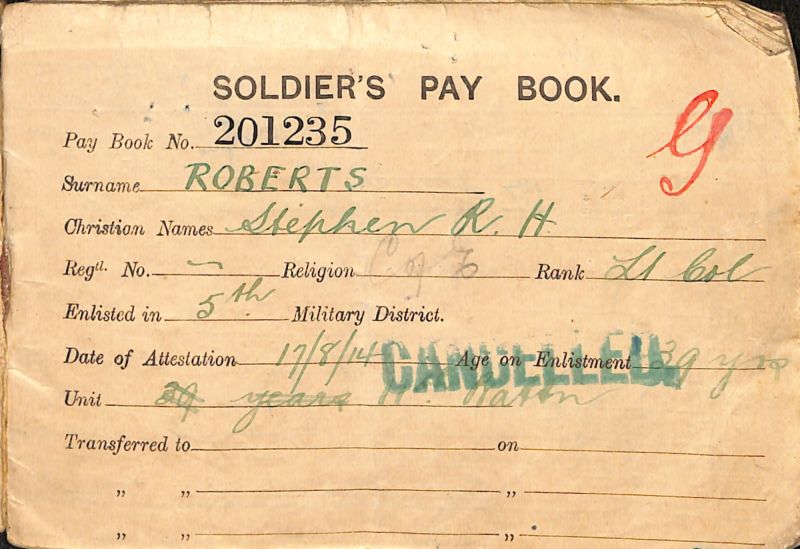 SOLDIER'S PAY BOOK.
G
Pay Book No. 201235
Surname ROBERTS
Christian Names Stephen R. H.
Regtl. No. – Religion C of E Rank Lt Col
Enlisted in 5th Military District.
Date of Attestation 17/8/14 Age on Enlistment 39 yrs
CANCELLED.
Unit 39 years
Transferred to on
„ „ „
„ „ „